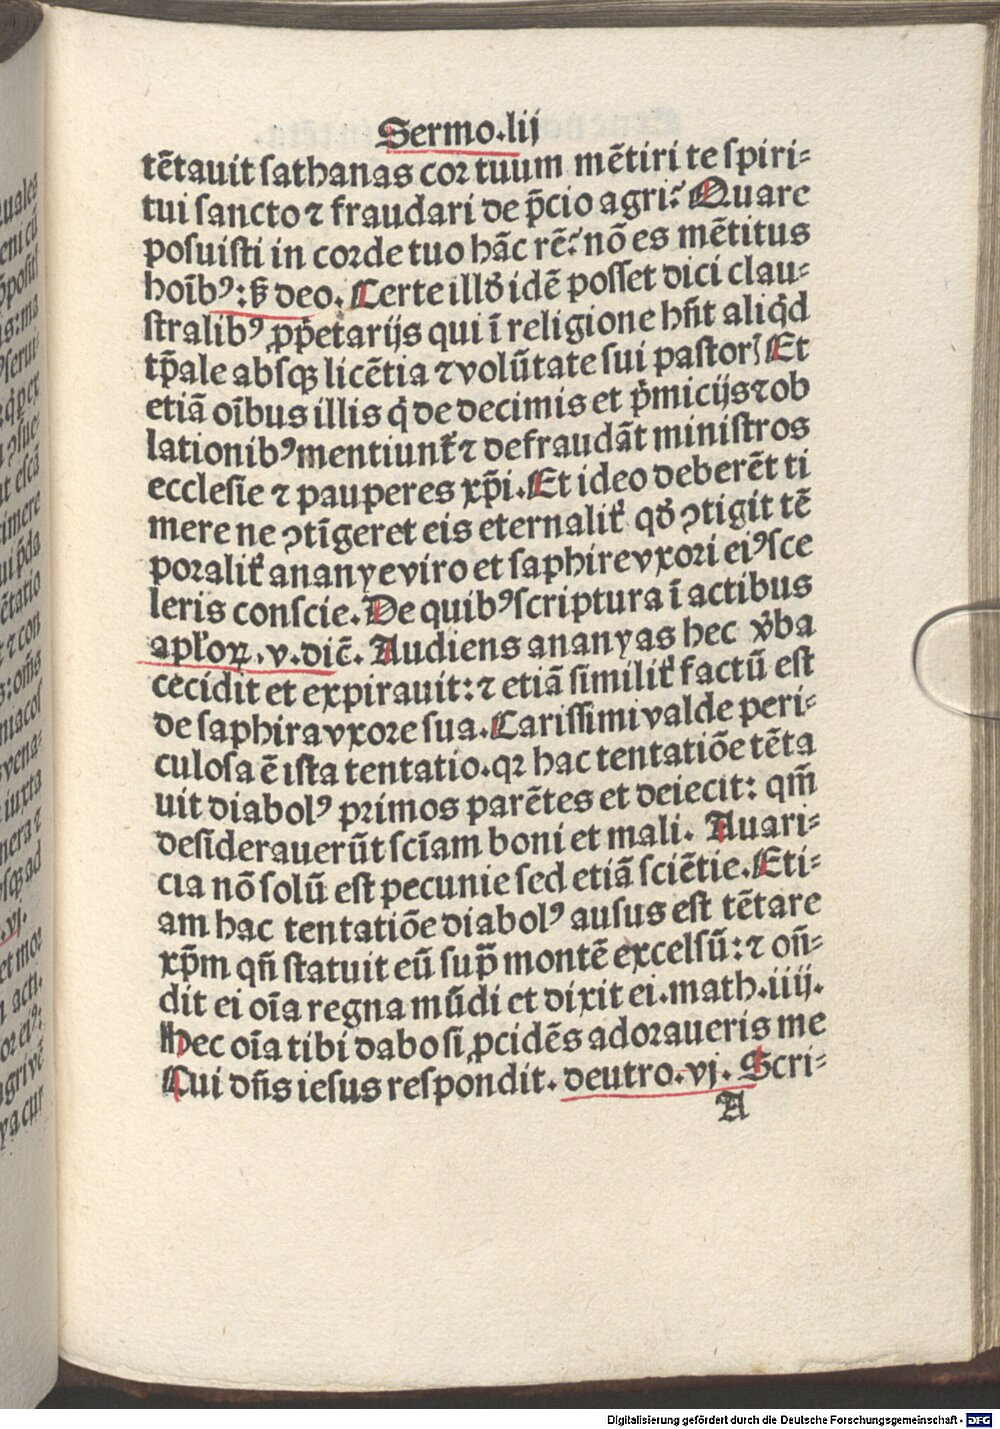 Sermo.lij
tētauit sathanas cor tuum mētiri te spiri-
tui sancto ⁊ fraudari de p̄cio agri? Quare
posuisti in corde tuo hāc rē? nō es mētitus
hoībꝰ: sꝫ deo. Certe illḋ idē posset dici clau-
stralibꝰ ꝓp̄etarijs qui ī religione hn̄t aliqḋ
tp̄ale absqꝫ licētia ⁊ volūtate sui pastorꝭ Et
etiā oībus illis q̇ de decimis et p̄micijs ⁊ ob
lationibꝰ mentiunt᷑ ⁊ defraudāt ministros
ecclesie ⁊ pauperes xp̄i. Et ideo deberēt ti
mere ne ꝯtīgeret eis eternalit᷑ qḋ ꝯtigit tē
poralit᷑ ananye viro et saphire vxori eiꝰ sce
leris conscie. De quibꝰ scriptura ī actibus
apl'oꝝ. v. dic̄. Audiens ananyas hec v̇ba
cecidit et expirauit: ⁊ etiā similit᷑ factū est
de saphira vxore sua. Carissimi valde peri-
culosa ē ista tentatio. qꝛ hac tentatiōe tēta
uit diabolꝰ primos parētes et deiecit: qm̄
desiderauerūt scīam boni et mali. Auari-
cia nō solū est pecunie sed etiā sciētie. Eti-
am hac tentatiōe diabolꝰ ausus est tētare
xp̄m qn̄ statuit eū sup̄ montē excelsū: ⁊ on̄-
dit ei oīa regna mūdi et dixit ei. math. iiij.
Hec oīa tibi dabo si ꝓcidēs adoraueris me
Cui dn̄s iesus respondit. deutro. vj. Scri-
A
Digitalisierung gefördert durch die Deutsche Forschungsgemeinschaft - DFG